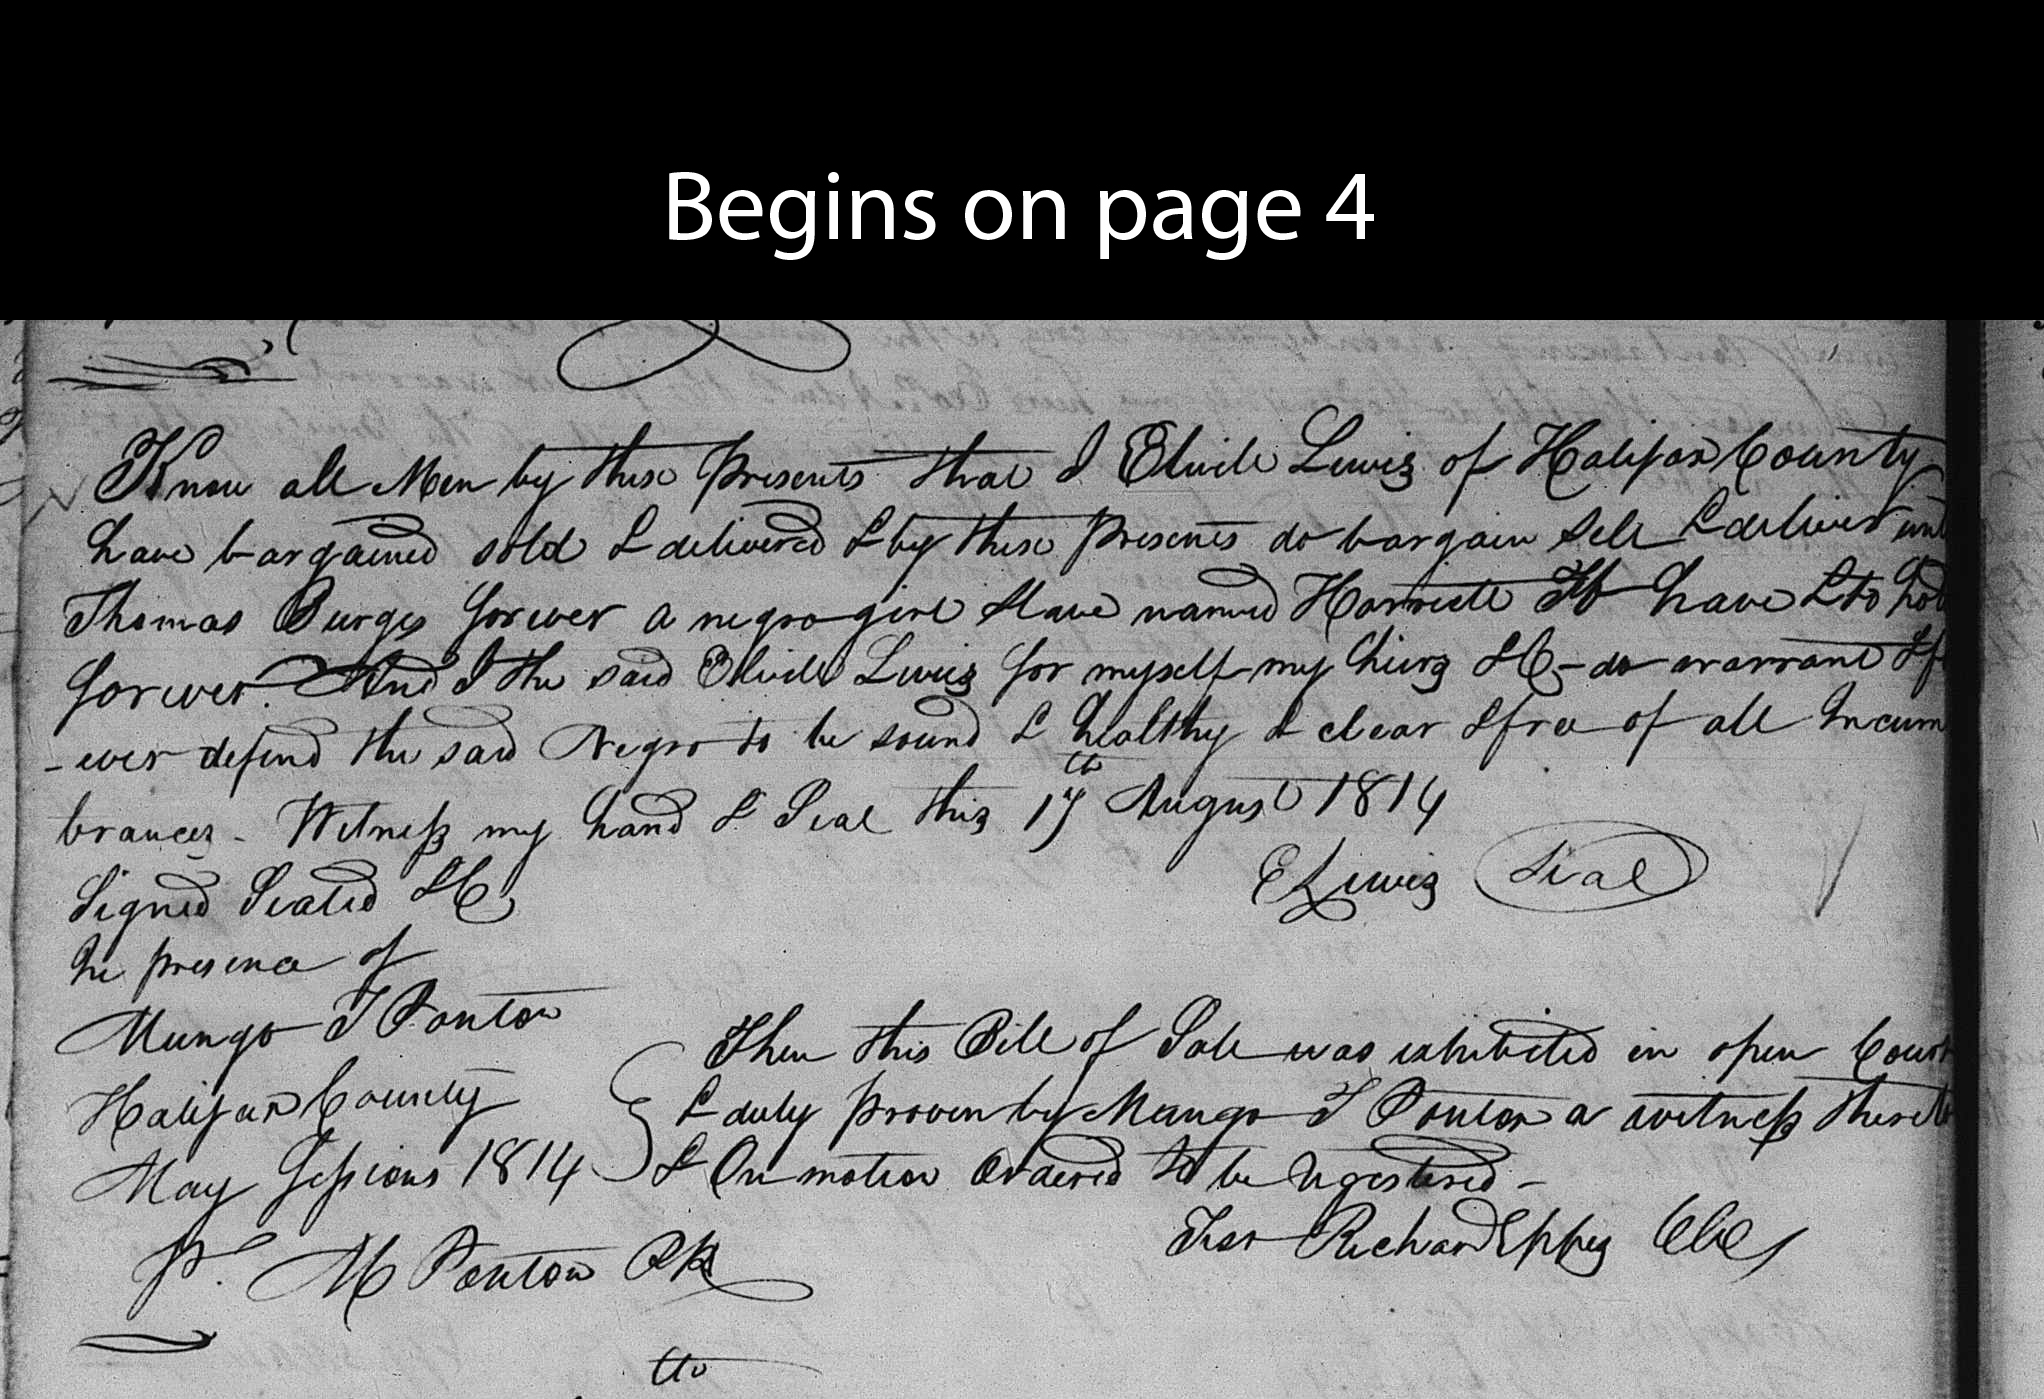 Begins on page 4
Know all Men by these Presents that I Elwile Lewis of Halifax County
have bargained sold & delivered & by these presents do bargain Sell & deliver unt
Thomas Burges forever a negro girl Slave named Harriete To have & to hol
forever. And I the said Elwile Lewis for myself my heirs &C - do warrant & f
- ever defend the said Negro to be sound & healthy & clear & free of all Incum
brances - Witness my hand & Seal this 17th August 1814
E Lewis Seal
Signed Sealed &C
In presence of
Mungo T Ponton
Halifax County
May Sessions 1814
Then this Bill of Sale was exhibited in open Court
& duly proven by Mungo T Ponton a witness thereto
& On motion Ordered to be Registered -
Test Richard Eppes
M Ponton